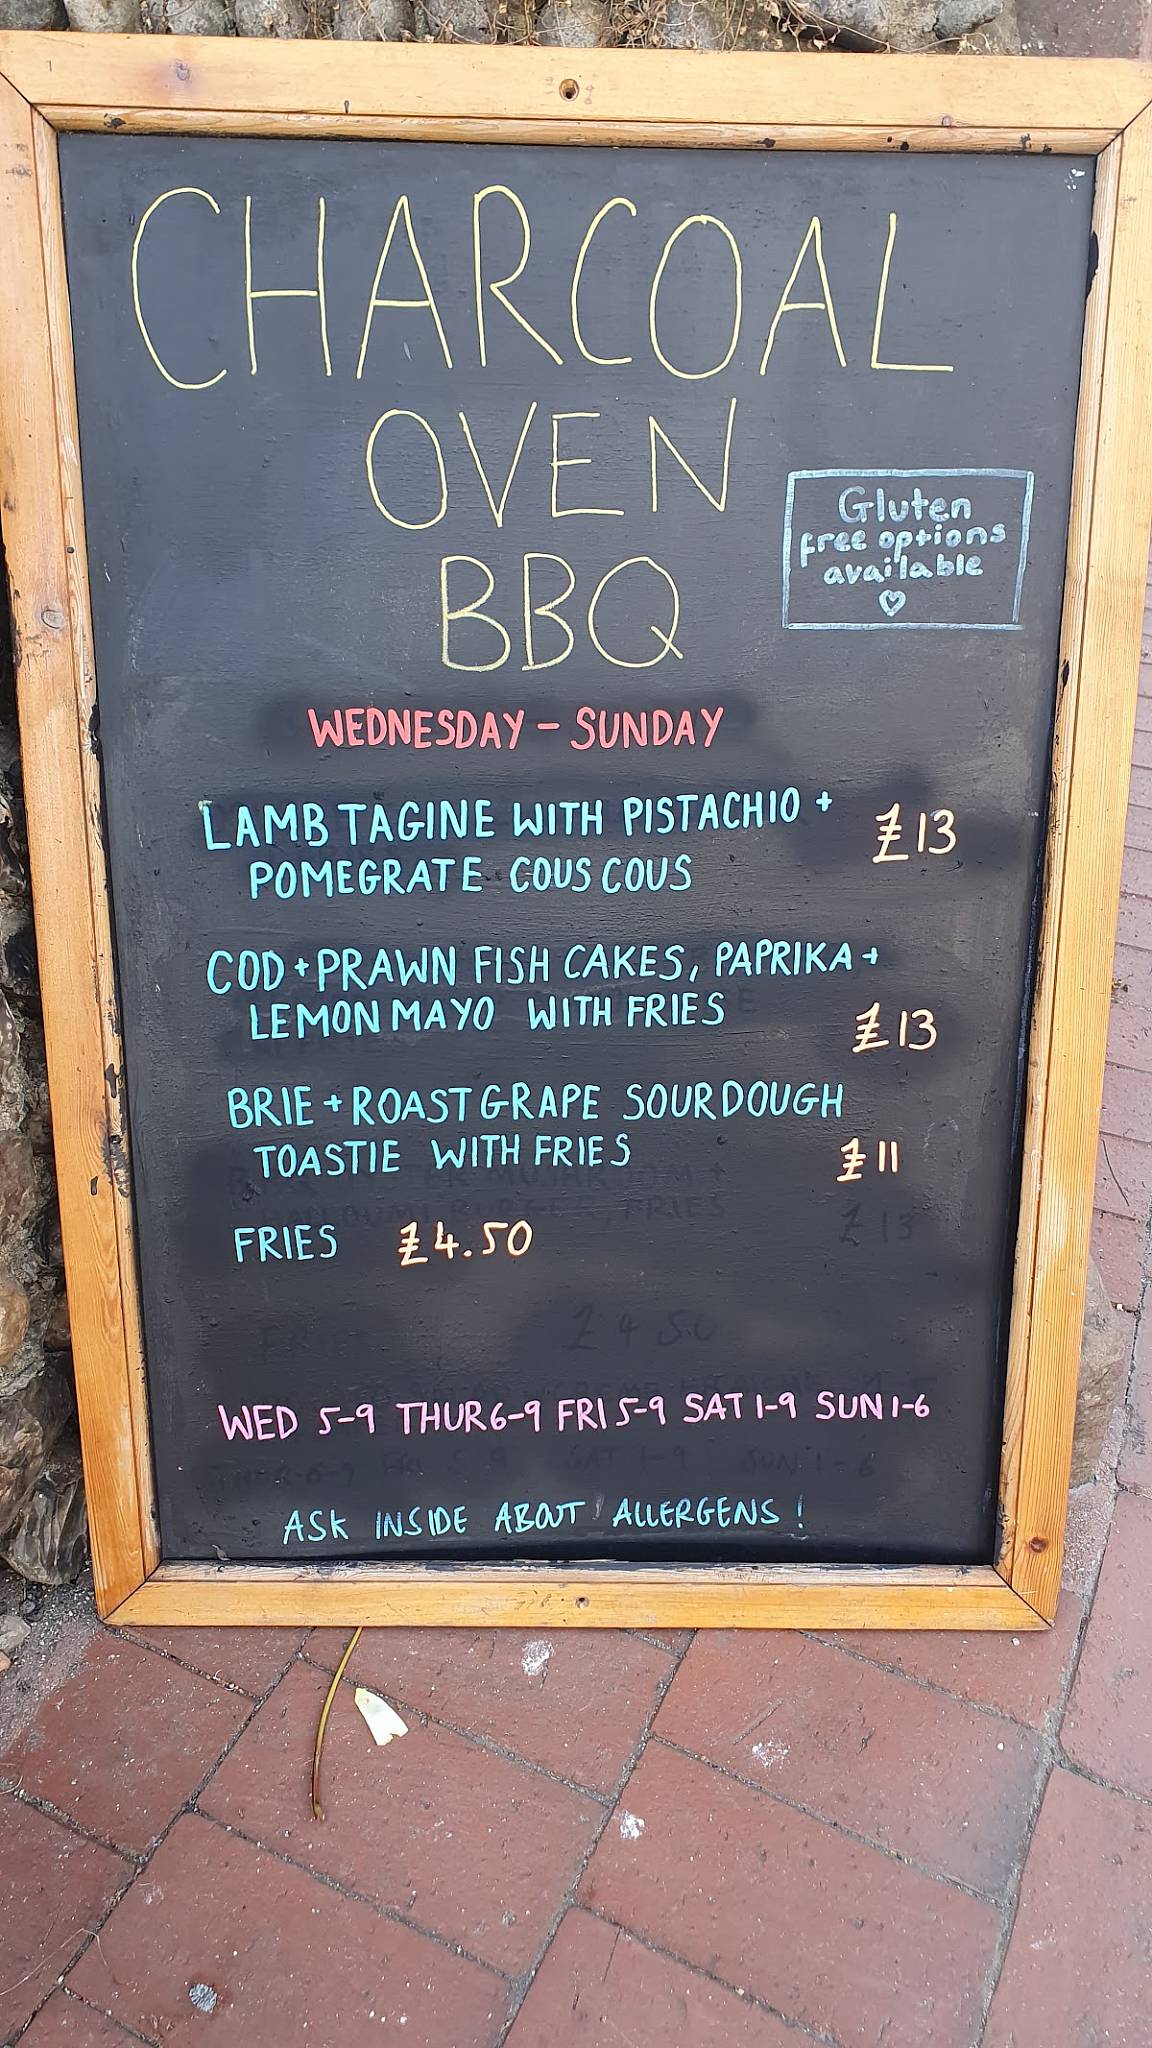 CHARCOAL
OVEN
BBQ
Gluten
free options
available
WEDNESDAY - SUNDAY
LAMB TAGINE WITH PISTACHIO + £13
POMEGRATE COUS COUS
COD + PRAWN FISH CAKES, PAPRIKA +
LEMON MAYO WITH FRIES £13
BRIE + ROAST GRAPE SOURDOUGH
TOASTIE WITH FRIES £11
FRIES £4.50
WED 5-9 THUR 6-9 FRI 5-9 SAT 1-9 SUN 1-6
ASK INSIDE ABOUT ALLERGENS!